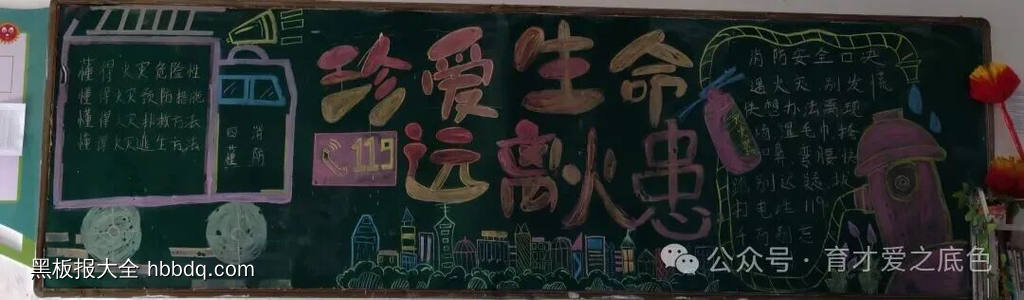 懂得火灾危险性
懂得火灾预防措施
懂得火灾扑救方法
懂得火灾逃生方法
消防
四懂
珍爱生命
119
远离火患
消防安全口决
遇火灾别发慌
快想办法离现
湿毛巾捂
口鼻弯腰快
别迟疑
打电话119
千万别忘
黑板报大全 hbbdq.com
公众号·育才爱之底色